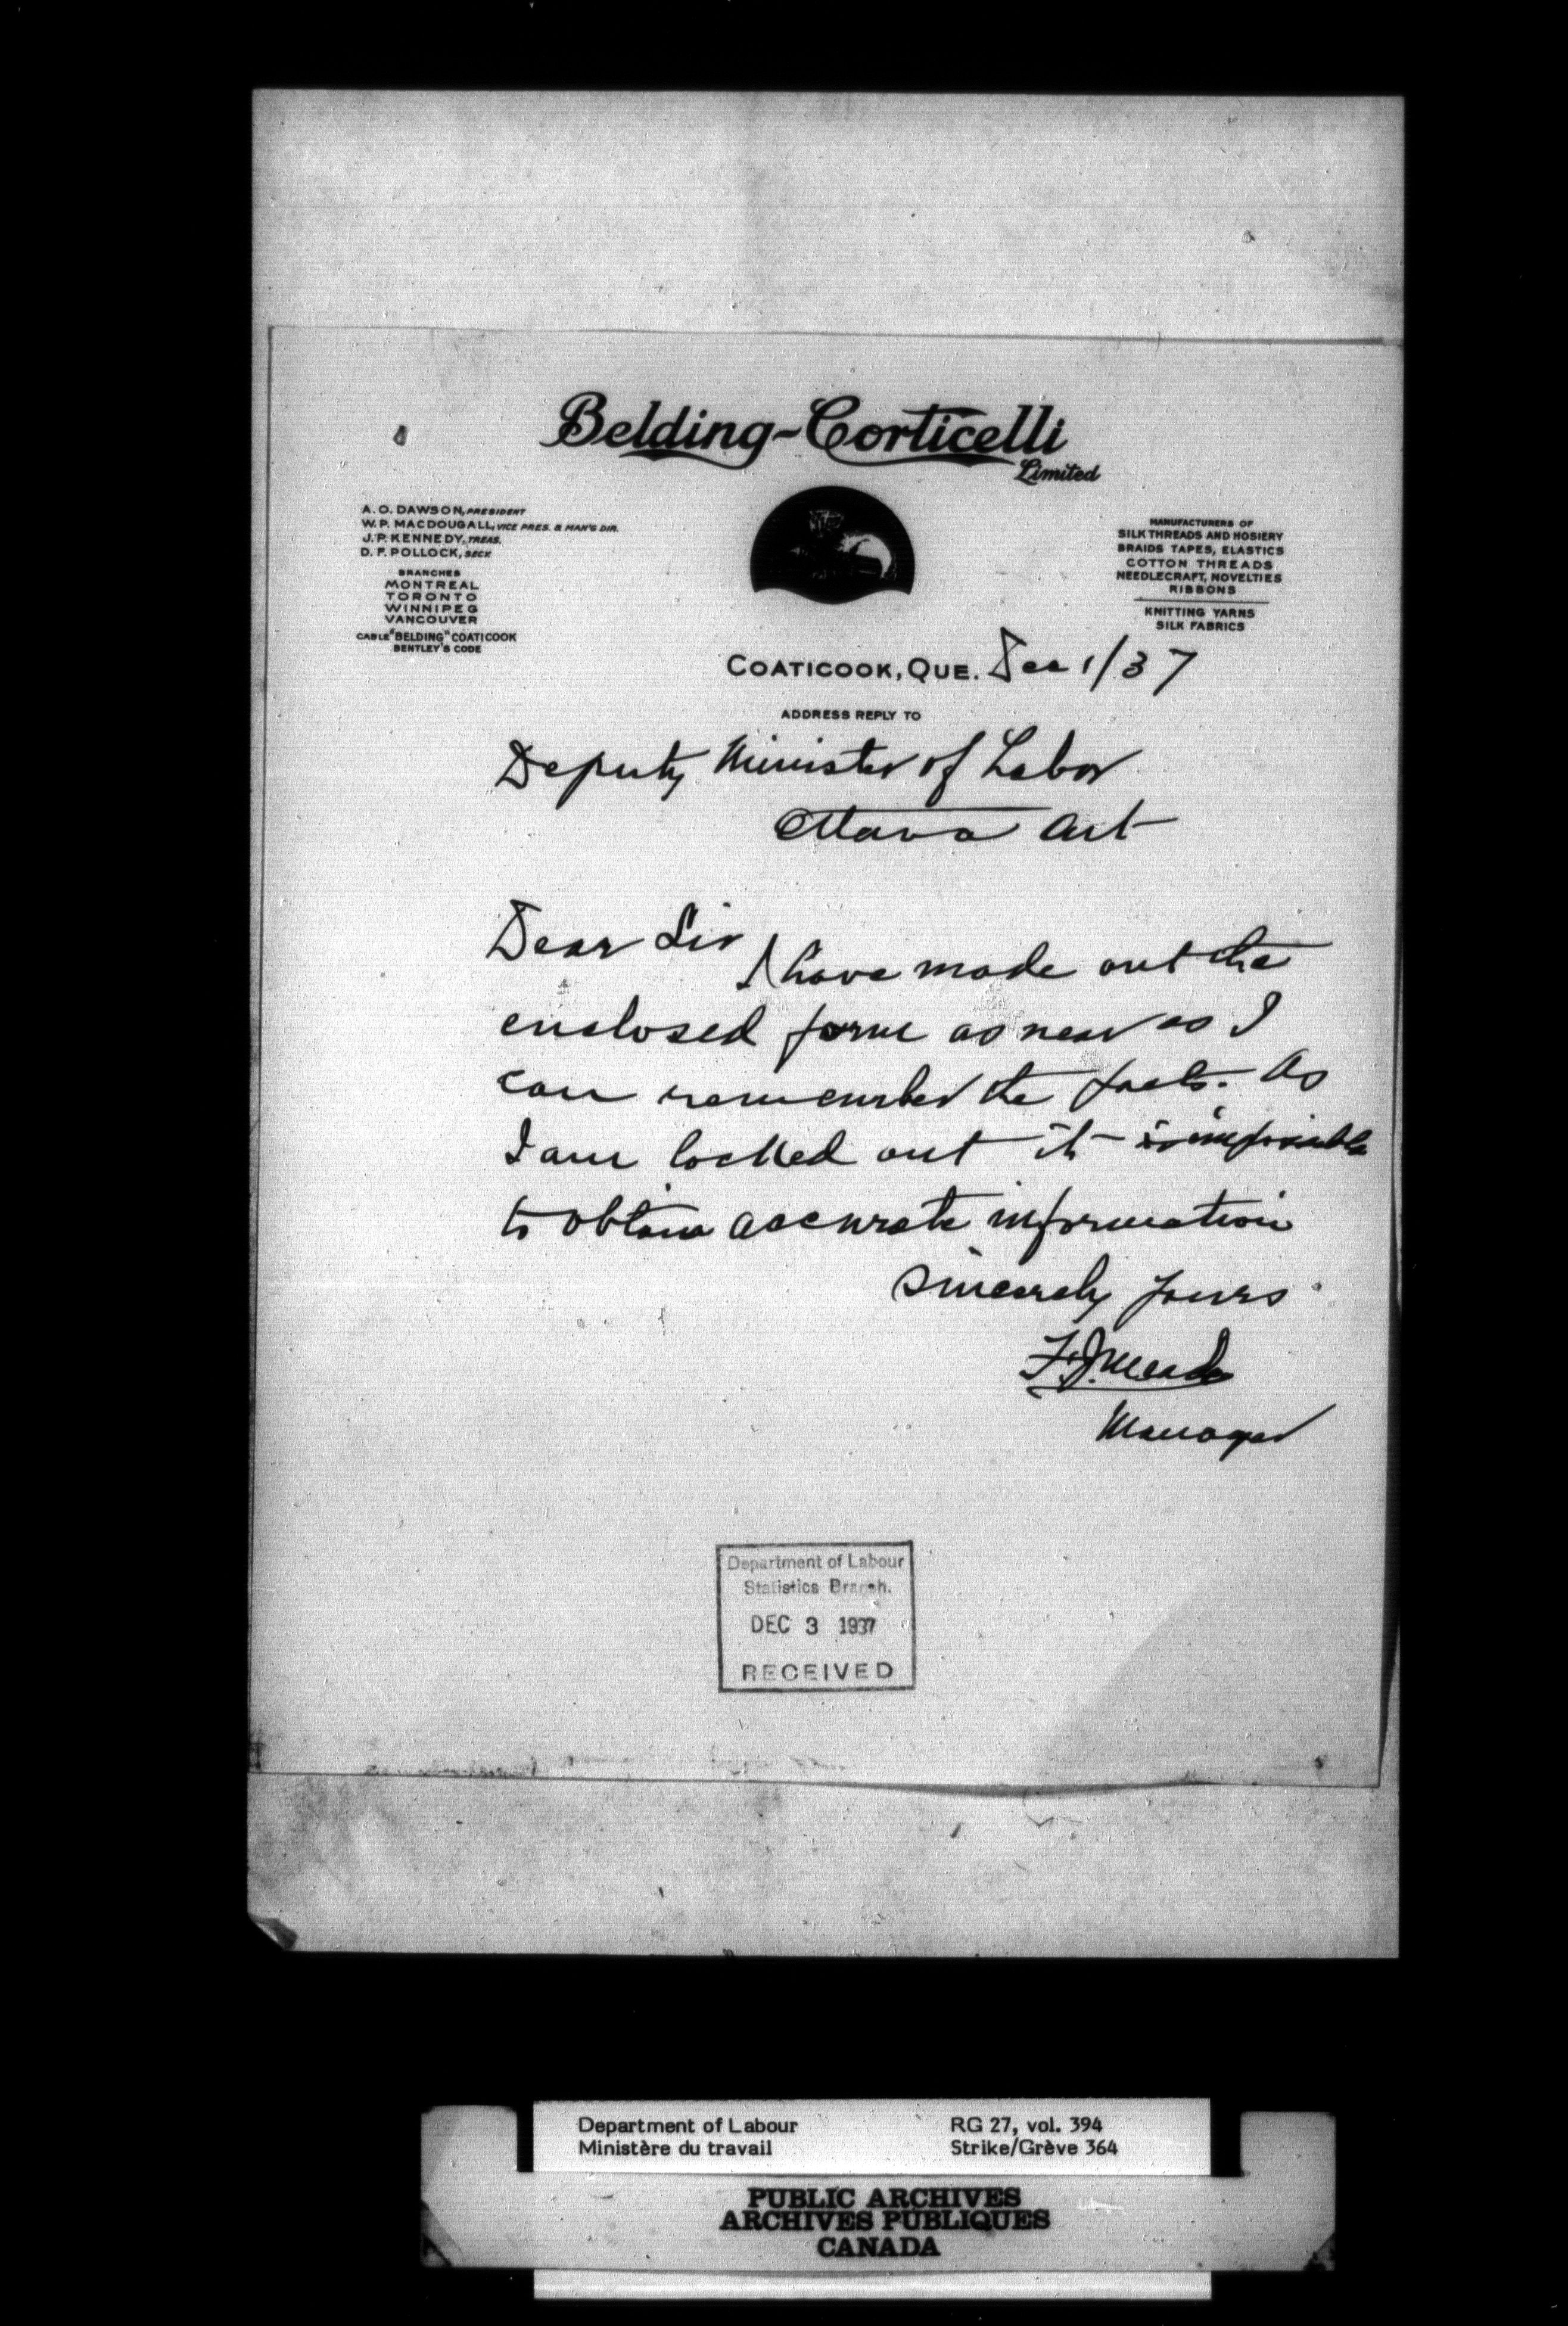 Belding-Corticelli
Limited
A. O. DAWSON, PRESIDENT
W. P. MACDOUGALL, VICE PRES. & MAN'G DIR.
J. P. KENNEDY, TREAS.
D. F. POLLOCK, SECY.
BRANCHES
MONTREAL
TORONTO
WINNIPEG
VANCOUVER
CABLE "BELDING" COATICOOK
BENTLEY'S CODE
MANUFACTURERS OF
SILK THREADS AND HOSIERY
BRAIDS TAPES, ELASTICS
COTTON THREADS
NEEDLECRAFT, NOVELTIES
RIBBONS
KNITTING YARNS
SILK FABRICS
COATICOOK, QUE. Dec 1/37
ADDRESS REPLY TO
Deputy Minister of Labor
Ottawa Ont
Dear Sir
I have made out the
enclosed form as near as I
can remember the facts. As
I am locked out it is impossible
to obtain accurate information
Sincerely yours
F. J. Meade
Manager
Department of Labour
Statistics Branch.
DEC 3 1937
RECEIVED
Department of Labour
Ministère du travail
RG 27, vol. 394
Strike/Grève 364
PUBLIC ARCHIVES
ARCHIVES PUBLIQUES
CANADA